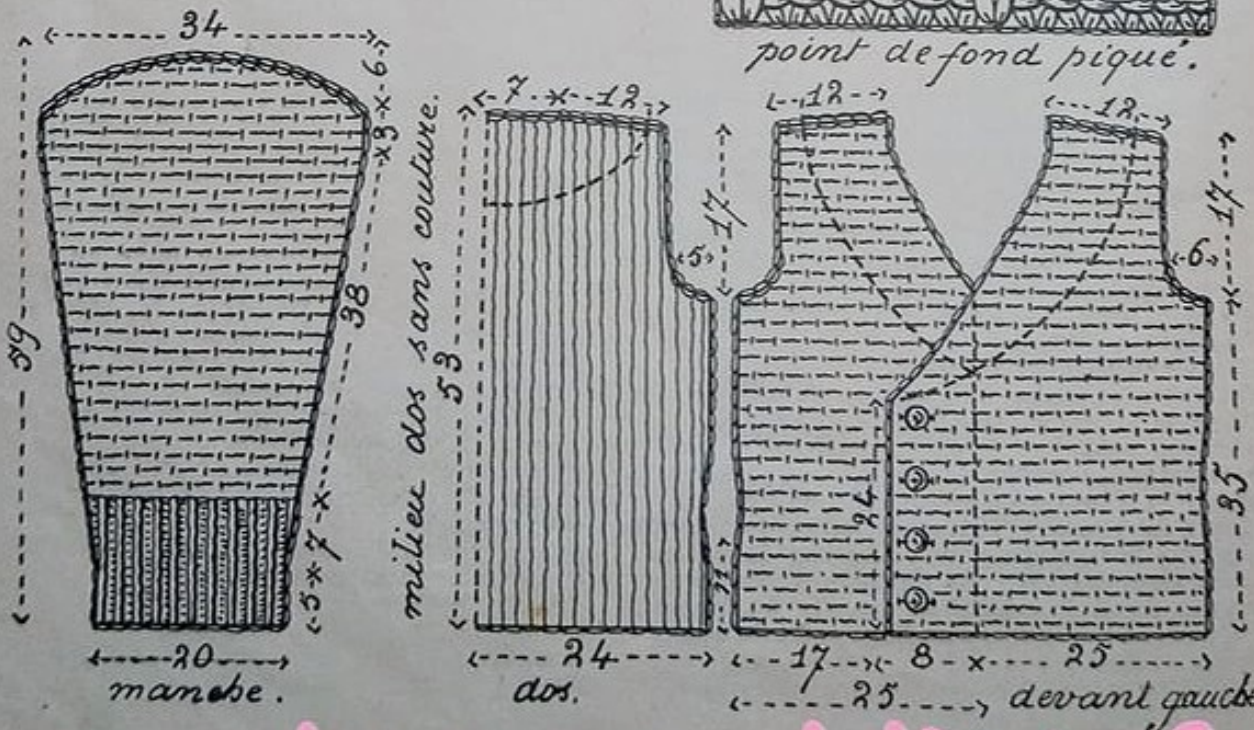 point de fond piqué.
34
6
3
38
59
5 7
20
manche.
milieu dos sans couture.
7 12
53
5
17
11
24
dos.
12
12
17
6
24
35
17 8 25
25
devant gauche